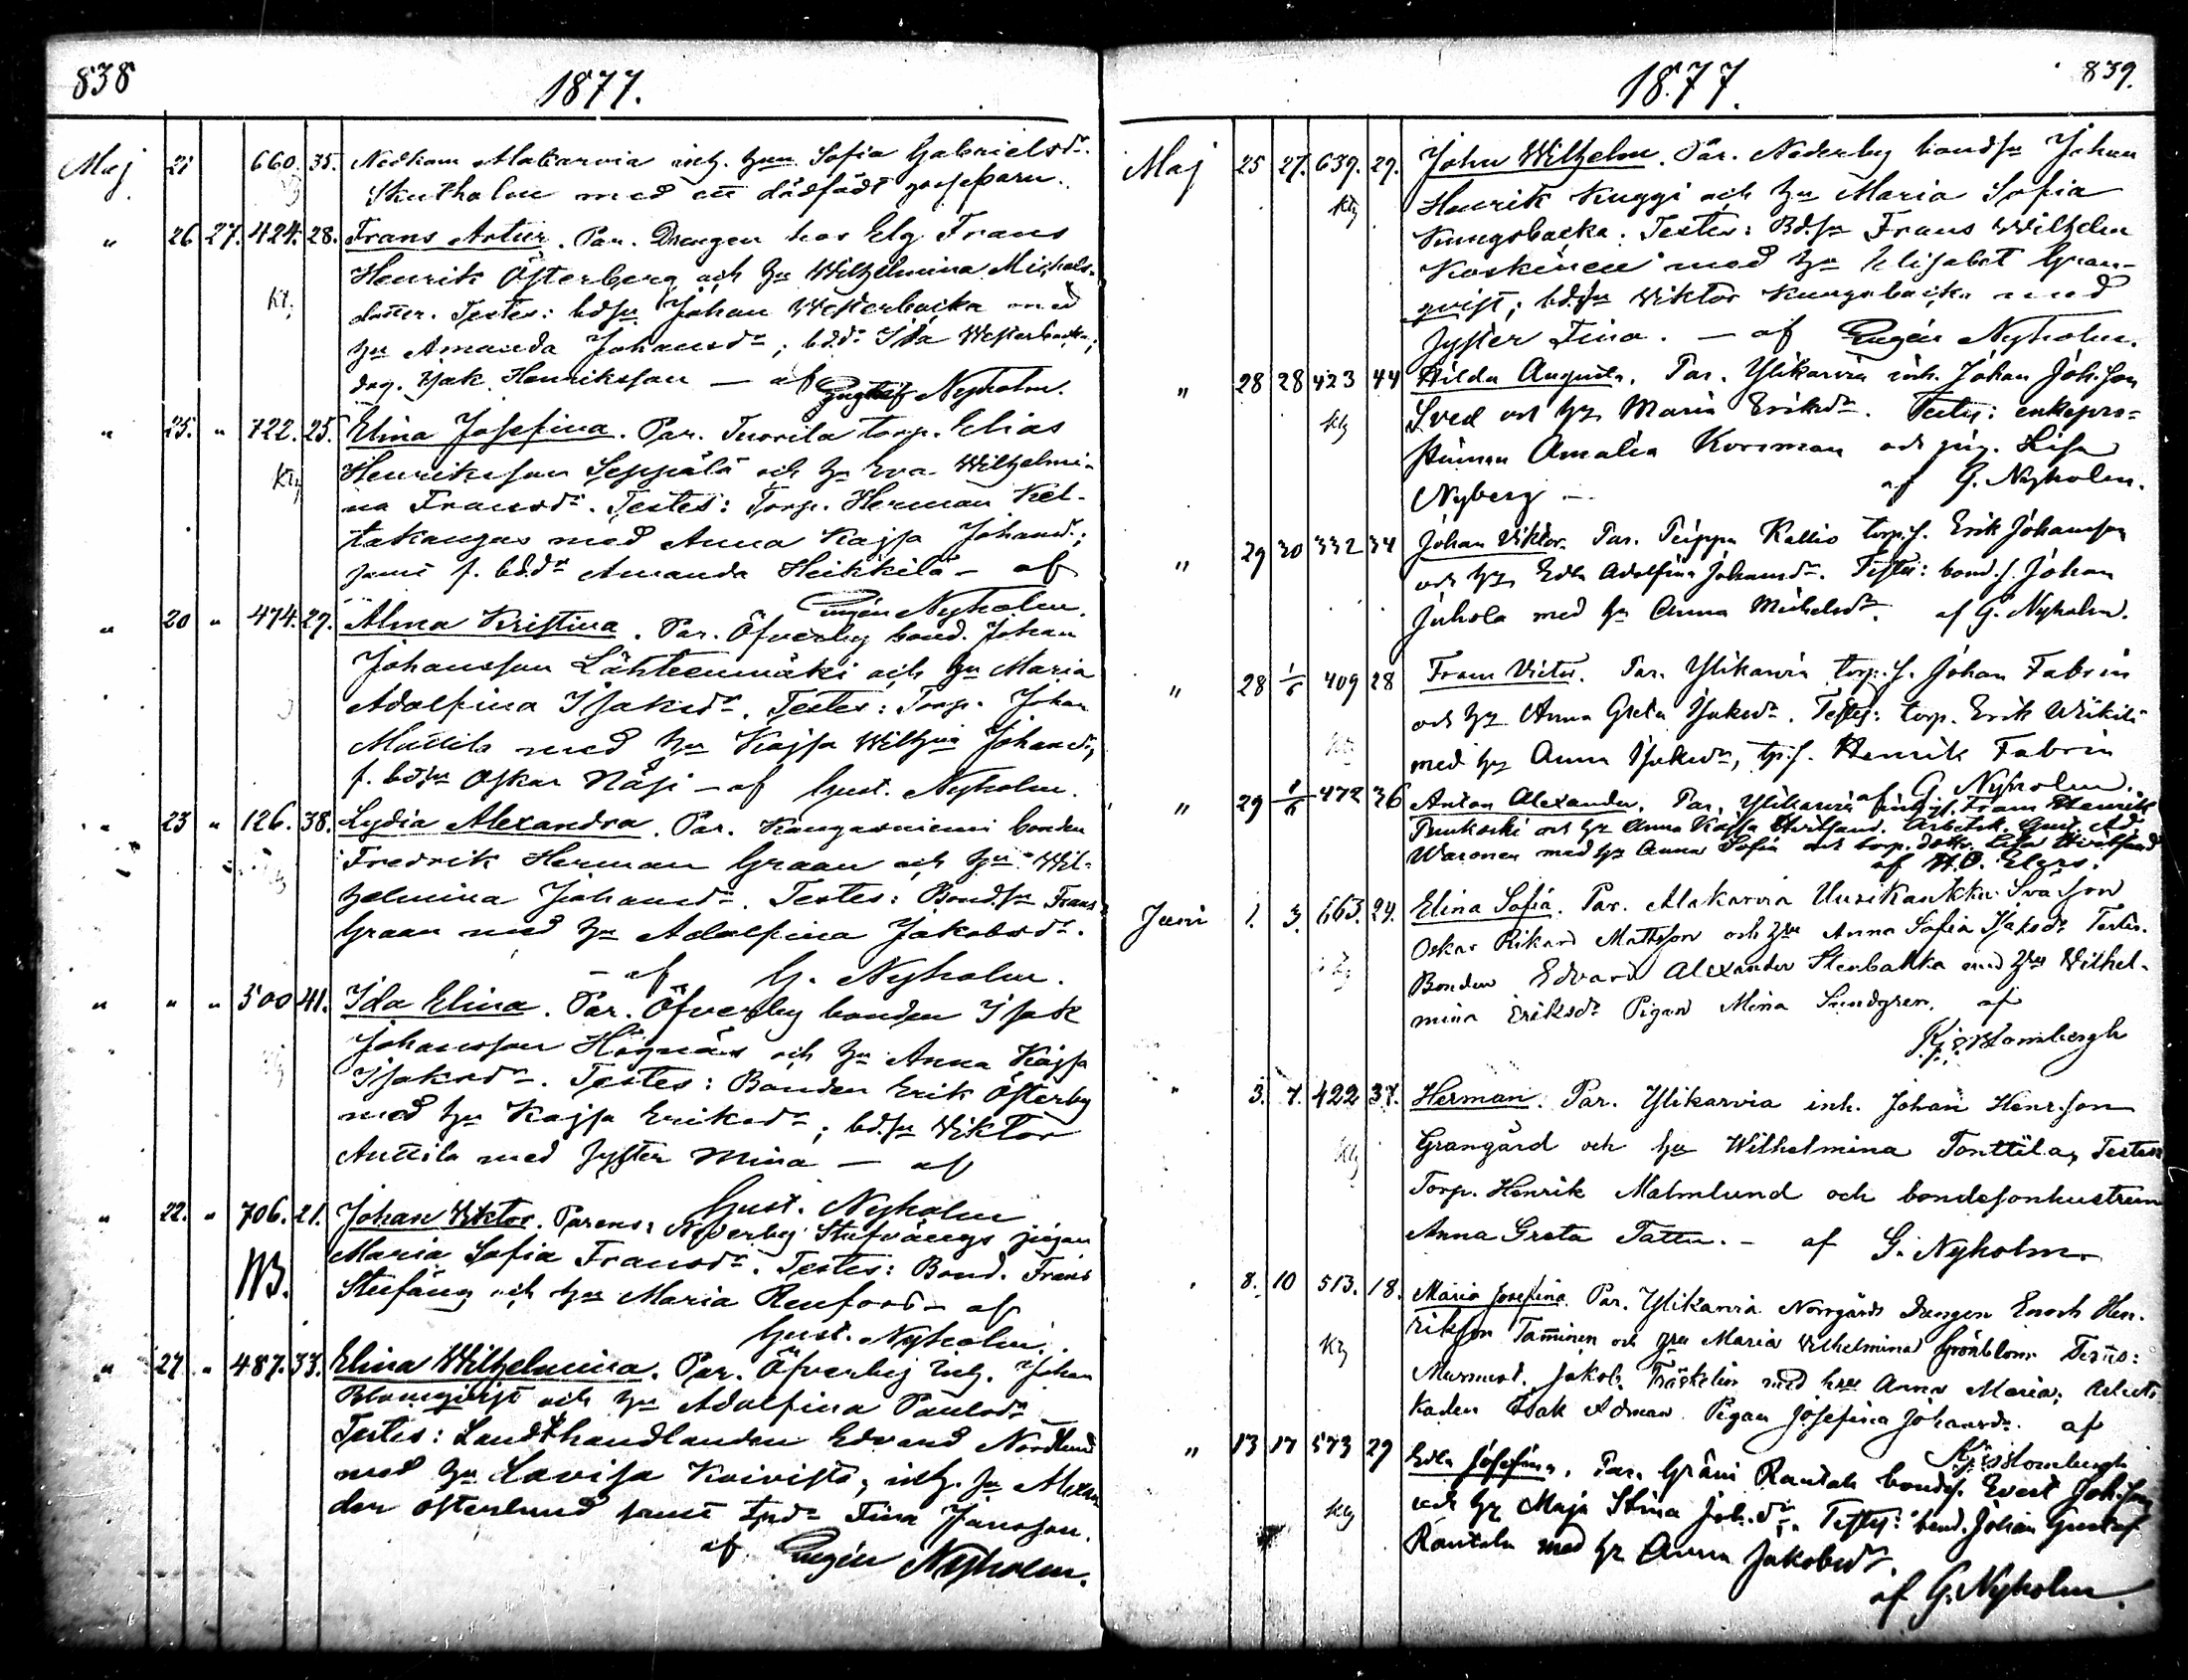 838
1877.
Maj 21 660. 35. Nedkom Alakarvia inh. hm Sofia Gabrielsdr
Skutholm med ett dödfödt gossebarn.
" 26 27. 424. 28. Frans Artur. Par. Drengen hos Elg Frans
Henrik Österberg och hu Wilhelmina Michels-
dotter. Testes: bdsn Johan Westerbacka med
Kl. hu Amanda Johansdr; bdr Ida Westerbacka,
drg. Isak Henriksson — af Gustaf Nyholm.
" 25. " 722. 25. Elina Josefina. Par. Tuorila torp. Elias
Henriksson Seppälä och hu Eva Wilhelmi-
na Fransdr. Testes: Torp. Herman Kel-
takangas med Anna Kajsa Johansd.;
samt f. bddr Amanda Heikkilä — af
Eugén Nyholm.
" 20 " 474. 29. Alma Kristina. Par. Öfverby bond. Johan
Johansson Lähteenmäki och hu Maria
Adolfina Isaksdr. Testes: Torp. Johan
Mattila med hu Kajsa Wilhna Johansd.,
f. bdsn Oskar Näsi — af Gust. Nyholm.
" 23 " 126. 38. Lydia Alexandra. Par. Kangasniemi bonden
Fredrik Herman Graan och hu Wil-
helmina Johansdr. Testes: Bondsn Frans
Graan med hu Adolfina Jakobsdr.
— af G. Nyholm.
" " " 500 41. Ida Elina. Par. Öfverby bonden Isak
Johansson Högnäs och hu Anna Kajsa
Isaksdr. Testes: Bonden Erik Österby
med hu Kajsa Eriksdr; bdsn Viktor
Anttila med syster Mina — af
Gust. Nyholm
" 22. " 706. 21. Johan Viktor. Parens: Nederby Stufvängs pigan
Maria Sofia Fransdr. Testes: Bond. Frans
NB. Stufäng och hu Maria Renfors — af
Gust. Nyholm.
" 27. " 487. 33. Elina Wilhelmina. Par. Öfverby inh. Johan
Blomqvist och hu Adolfina Paulsdr
Testes: Landthandlanden Edvard Nordlund
med hu Lovisa Koivisto, inh. sn Alexan
der Österlund samt tpdr Fina Jansson.
af Eugén Nyholm.
1877.
839.
Maj 25 27. 639. 29. John Wilhelm. Par. Nederby bondsn Johan
Henrik Kuggi och hu Maria Sofia
Kungsbacka. Testes: Bdsn Frans Wilhelm
Koskinen med hu Elisabet Gran-
qvist; bdsn Viktor Kungsbacka med
syster Fina. — af Eugén Nyholm.
" 28 28 423 44 Hilda Augusta. Par. Ylikarvia inh. Johan Joh.son
Sved och hu Maria Eriksdr. Testes: enkepro-
stinnan Amalia Korsman och pig. Lisa
Nyberg — af G. Nyholm.
" 29 30 332 34 Johan Viktor. Par. Peippu Kallio torp.s. Erik Johansson
och hu Edla Adolfina Johansdr. Testes: bond.s. Johan
Juhola med hu Anna Michelsdr. af G. Nyholm.
" 28 1/6 409 28 Frans Victor. Par. Ylikarvia torp.s. Johan Fabrin
och hu Anna Greta Isaksdr. Testes: torp. Erik Wiikilä
med hu Anna Isaksdr, tp.s. Henrik Fabrin
af G. Nyholm.
" 29 1/6 472 36 Anton Alexander. Par. Ylikarvia Frans Henrik
och hu Anna Kajsa Arbetsk. Gust. Ad.
Waronen med hu Anna Sofia och torp. dottr. Lisa
af H. O. Elgus.
Juni 1. 3. 663. 24. Elina Sofia. Par. Alakarvia Uusikaukku Svärson
Oskar Rikard Mattsson och hu Anna Sofia Isaksdr Testes.
Bonden Edvard Alexander Stenbakka med hu Wilhel-
mina Eriksdr Pigan Mina Sundgren. af
Blombergh
" 3. 7. 422 37. Herman. Par. Ylikarvia inh. Johan Henr.son
Grangård och hu Wilhelmina Tonttila, Testes
Torp. Henrik Malmlund och bondesonhustrun
Anna Greta Tattu. — af G. Nyholm.
8. 10 513. 18. Maria Josefina. Par. Ylikarvia Norrgårds Drengen Enoch Hen-
rikson Tamminen och hu Maria Wilhelmina Grönblom Testes:
Murmest. Jakob Träskelin med hu Anna Maria; Arbets
karlen Isak Adman. Pigan Josefina Johansdr. af
Blombergh
" 13 17 573 29 Edla Josefina. Par. Gräni Rantala bondes. Evert Joh.son
och hu Maja Stina Joh.dr. Testes: bond. Johan Gustaf
Rantala med hu Anna Jakobsdr.
af G. Nyholm.